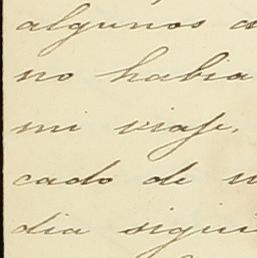 algunos a
no habia
mi viaje.
cado de u
dia sigui